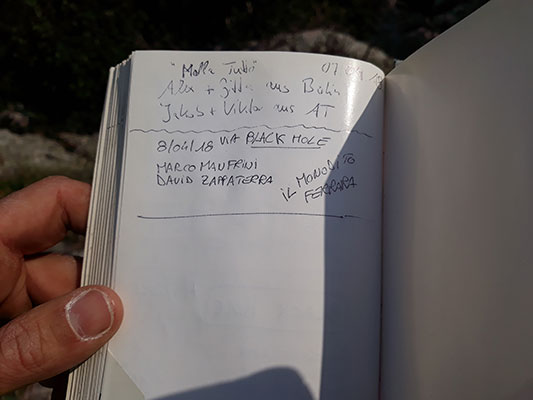 "Molla Tutto" 07.04.18
Alex + Gitti aus Berlin
Jakob + Viktor aus AT
8/04/18 VIA BLACK HOLE
MARCO MANFRINI
DAVID ZAPPATERRA
IL MONODITO
FERRARA